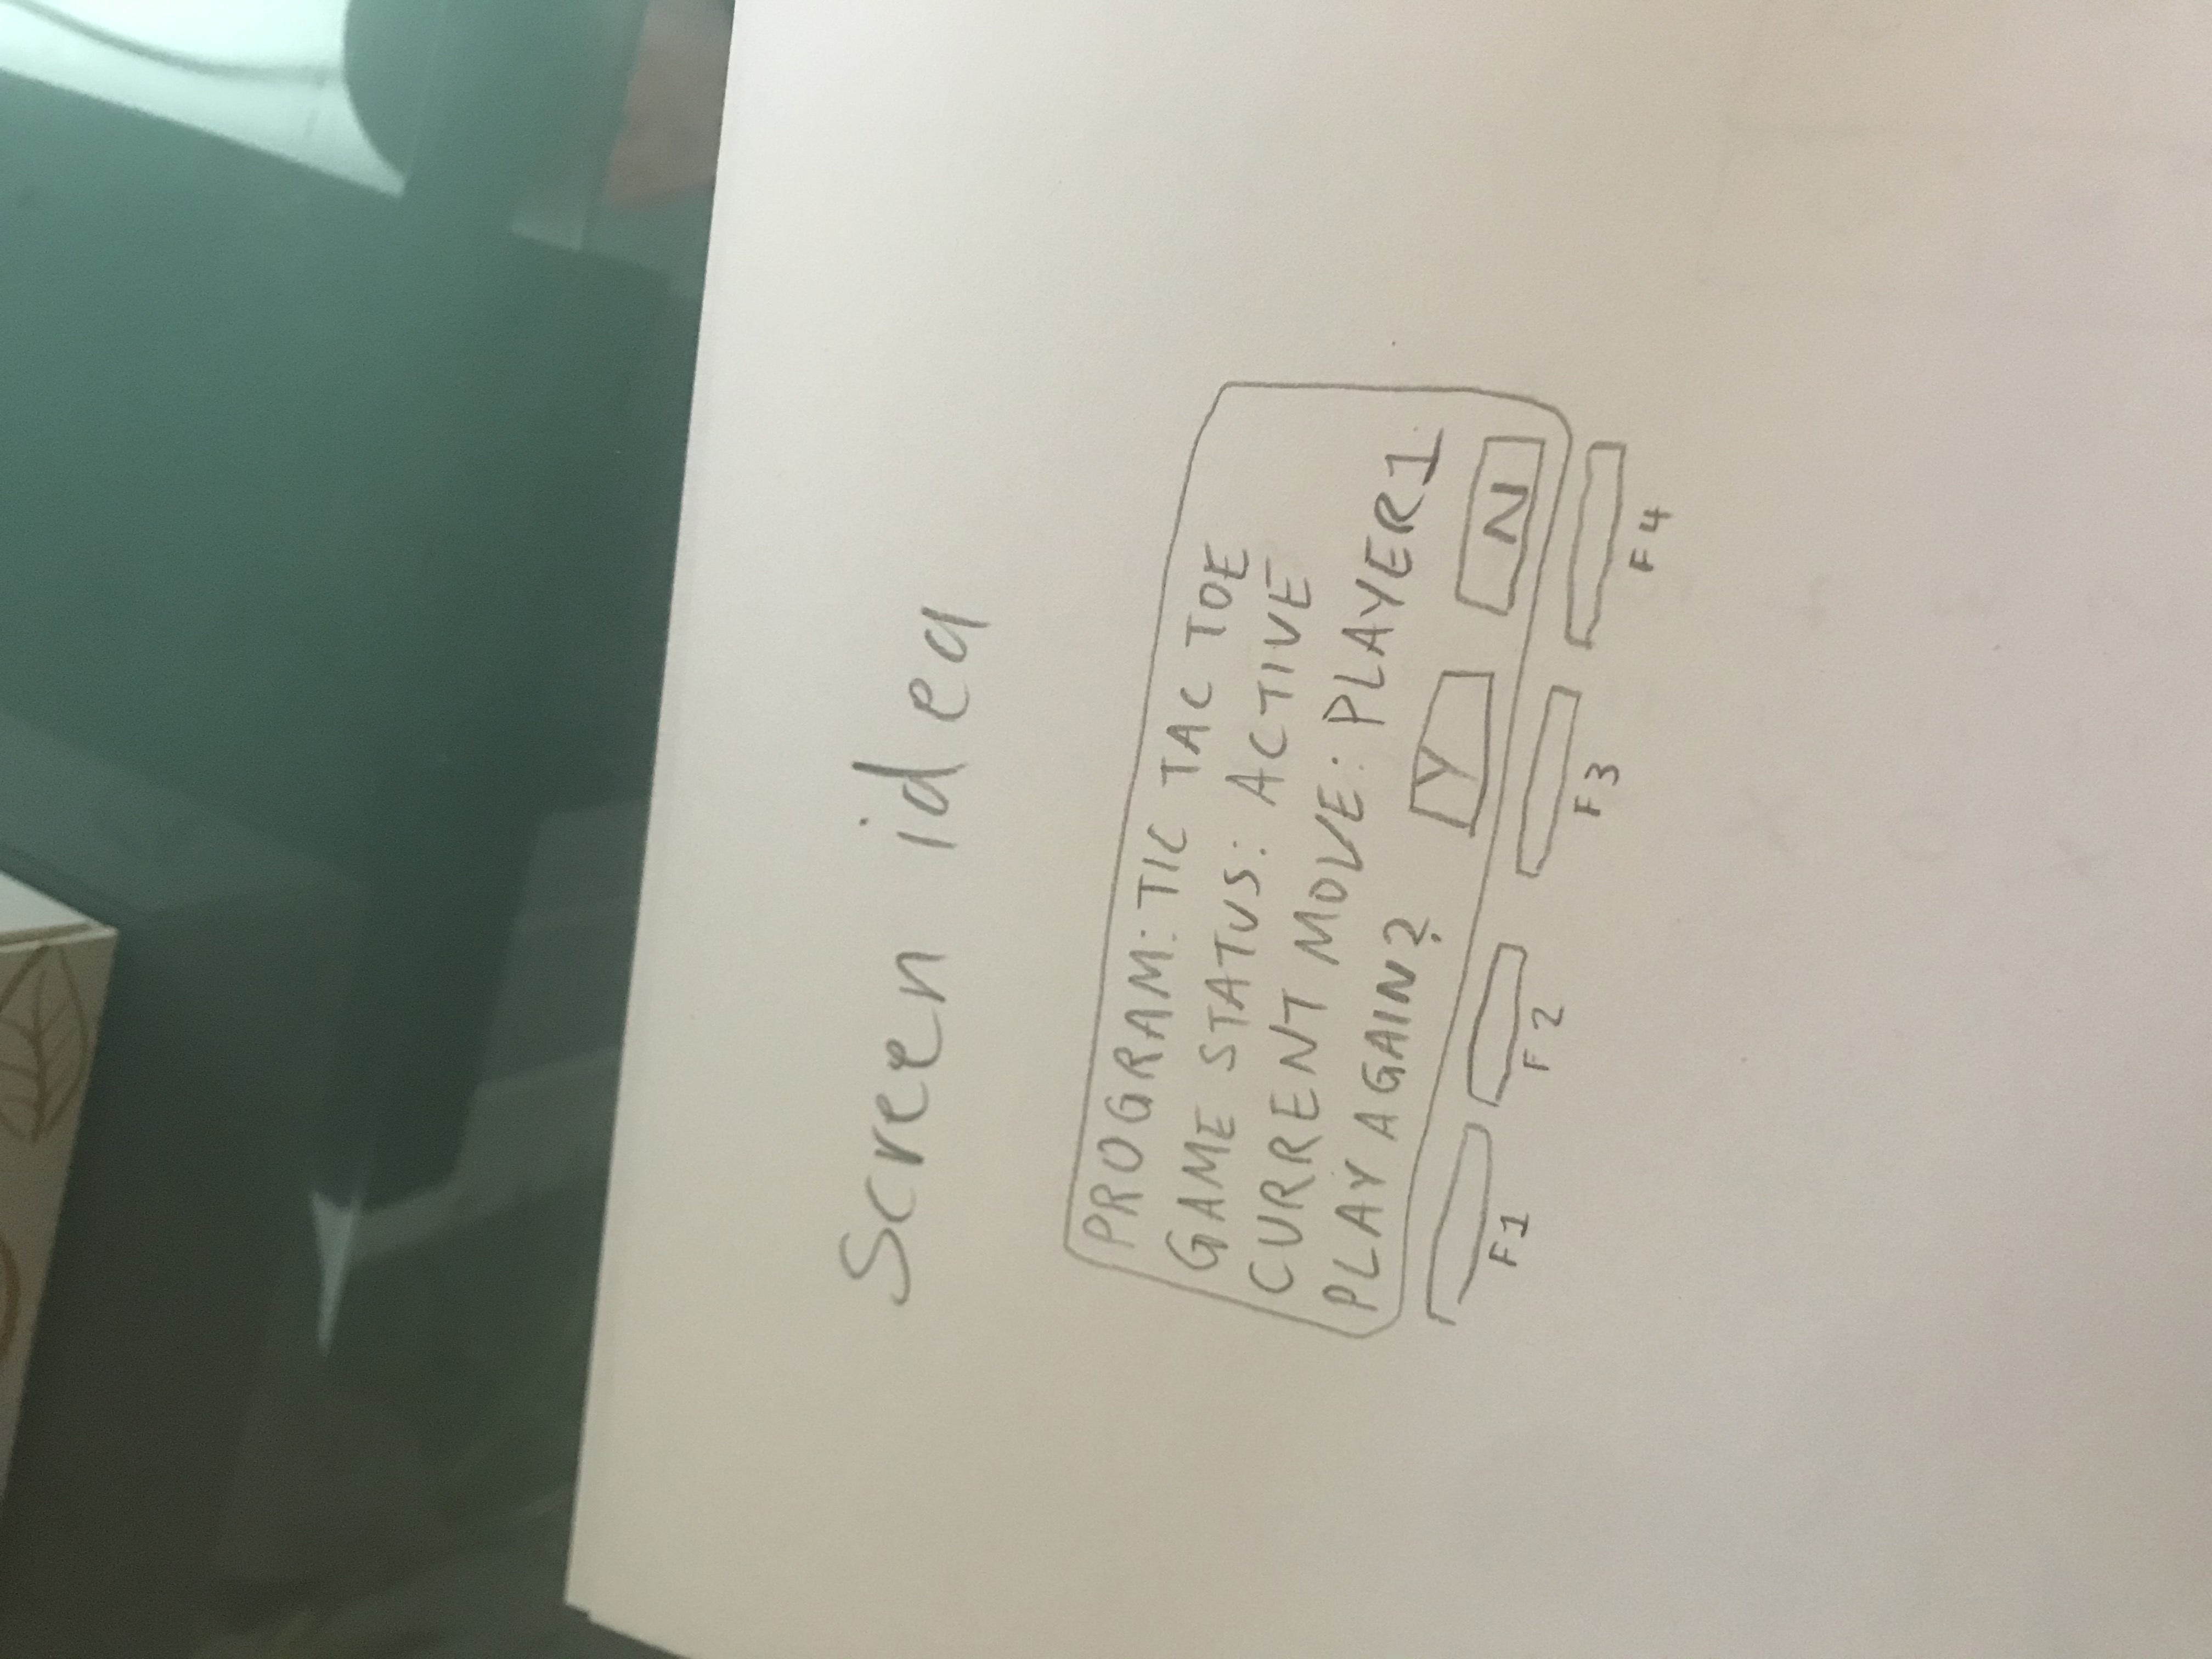 Screen idea
PROGRAM: TIC TAC TOE
GAME STATUS: ACTIVE
CURRENT MOVE: PLAYER1
PLAY AGAIN? Y N
F1 F2 F3 F4